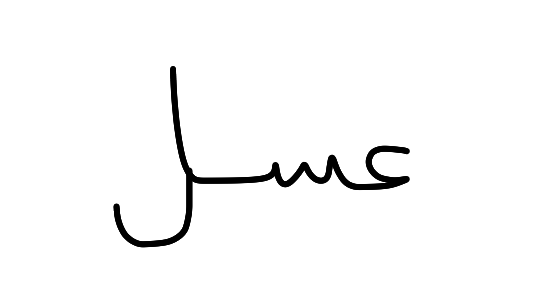 عسل